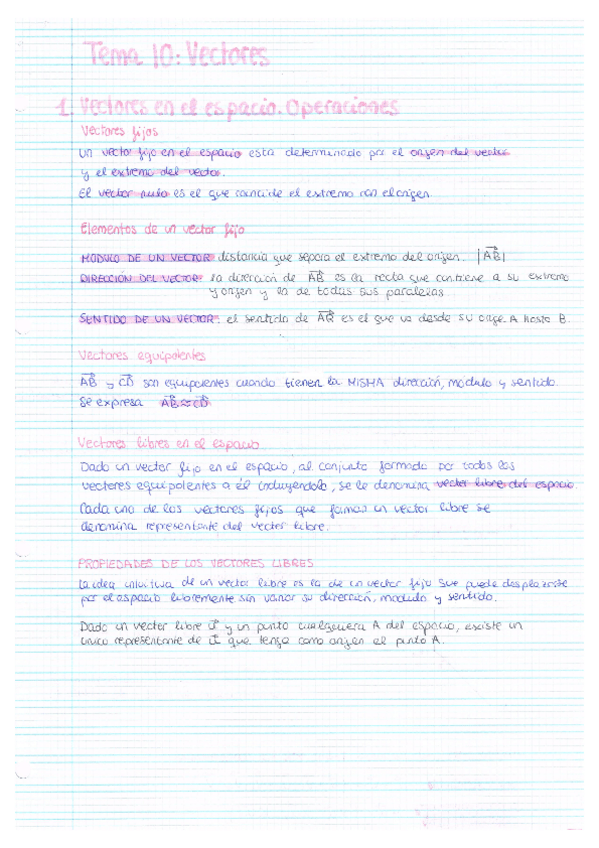 Tema 10: Vectores
1. Vectores en el espacio. Operaciones
Vectores fijos
Un vector fijo en el espacio esta determinado por el origen del vector
y el extremo del vector.
El vector nulo es el que coincide el extremo con el origen.
Elementos de un vector fijo
MODULO DE UN VECTOR: distancia que separa el extremo del origen. |AB|
DIRECCIÓN DEL VECTOR: la dirección de AB es la recta que contiene a su extremo
y origen y la de todas sus paralelas.
SENTIDO DE UN VECTOR: el sentido de AB es el que va desde su origen A hasta B.
Vectores equipolentes
AB y CD son equipolentes cuando tienen la MISMA dirección, modulo y sentido.
Se expresa AB≈CD
Vectores libres en el espacio
Dado un vector fijo en el espacio, al conjunto formado por todos los
vectores equipolentes a él incluyendolo, se le denomina vector libre del espacio.
Cada uno de los vectores fijos que forman un vector libre se
denomina representante del vector libre.
PROPIEDADES DE LOS VECTORES LIBRES
La idea intuitiva de un vector libre es la de un vector fijo que puede desplazarse
por el espacio libremente sin variar su dirección, modulo y sentido.
Dado un vector libre u⃗ y un punto cualquiera A del espacio, existe un
unico representante de u⃗ que tenga como origen el punto A.